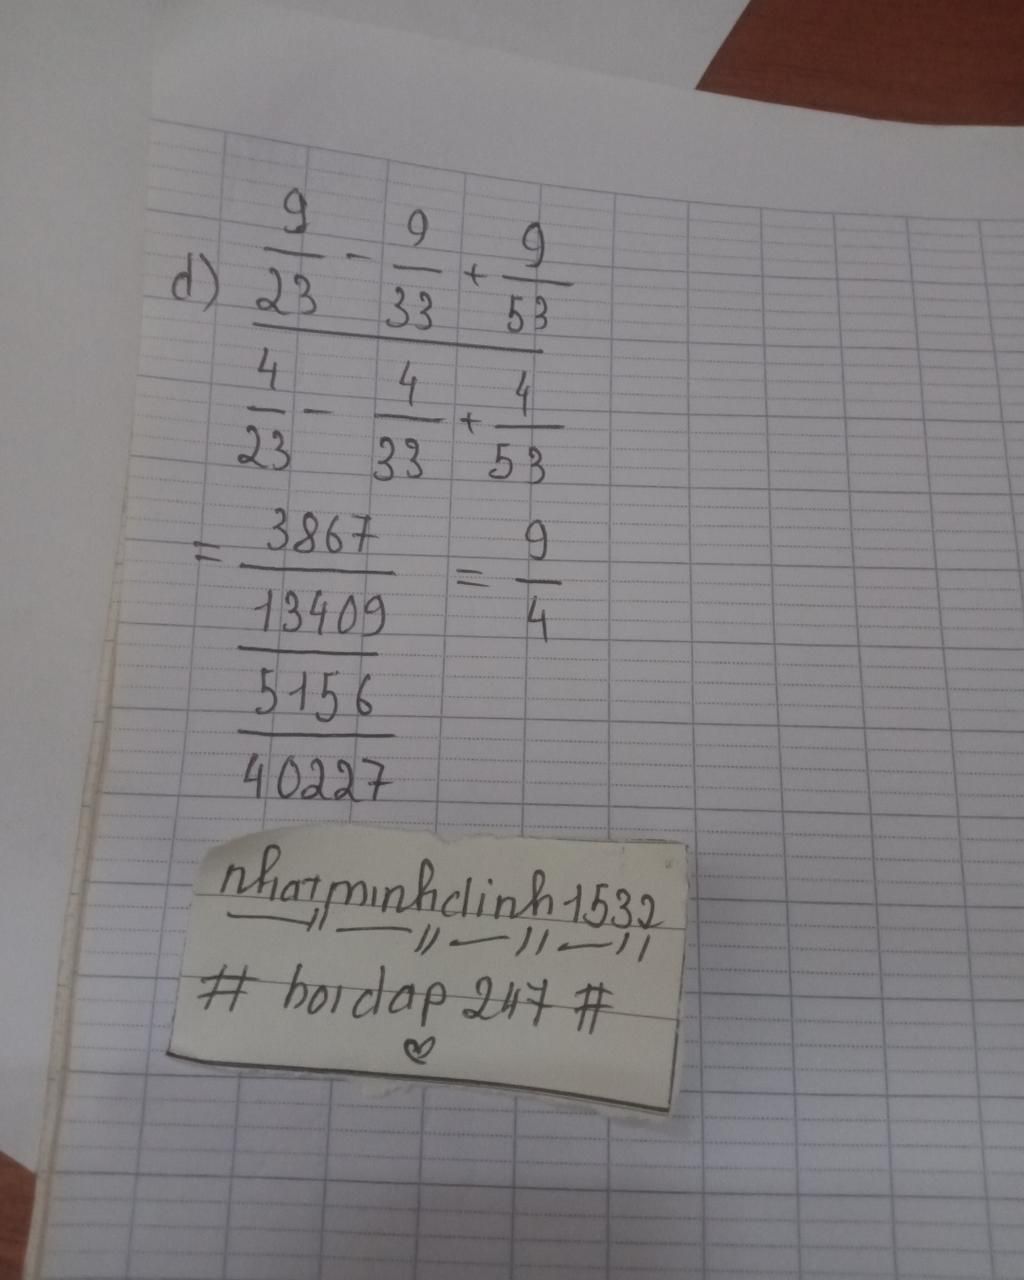 d) 9/23 - 9/33 + 9/53
4/23 - 4/33 + 4/53
= 3867/13409 = 9/4
5156/40227
nhatminhdinh1532
# hoidap 247 #